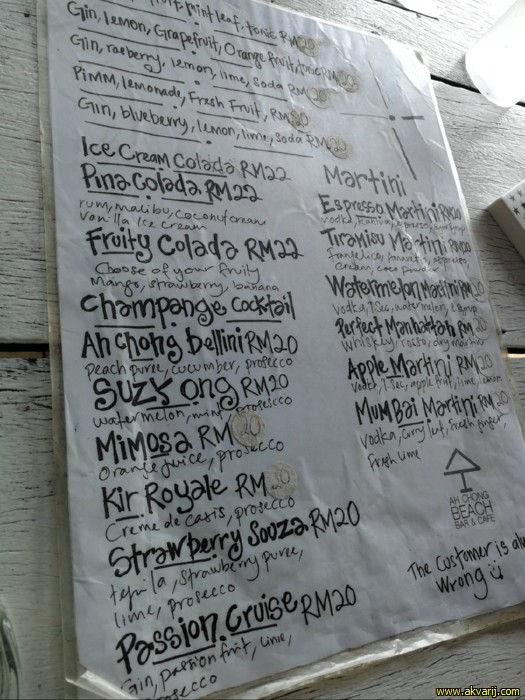 fruit, mint leaf, tonic RM20
Gin, lemon, Grapefruit, Orange fruit, tonic RM20
Gin, rasberry, lemon, lime, soda RM20
Pimm, lemonade, Fresh Fruit, RM20
Gin, blueberry, lemon, lime, soda RM20
Ice Cream Colada RM22
Pina Colada RM22
rum, malibu, coconut cream
Vanilla Ice cream
Fruity Colada RM22
Choose of your fruity
Mango, strawberry, banana
Champange Cocktail
Ah Chong Bellini RM20
Peach puree, cucumber, prosecco
Suzy Ong RM20
watermelon, mint, prosescco
Mimosa RM20
Orange juice, prosecco
Kir Royale RM30
Creme de casis, prosecco
Strawberry Souza RM20
tequila, strawberry puree,
lime, prosecco
Passion Cruise RM20
Gin, passion fruit, lime,
prosecco
Martini
Espresso Martini RM20
vodka, espresso
Tiramisu Martini RM20
cream, coco powder
Watermelon Martini RM20
Vodka, T.Sec, watermelon
Perfect Manhattan RM30
whiskey, rosso, dry martini
Apple Martini RM20
Vodca, T.Sec, apple fruit, lime, lemon
Mumbai Martini RM30
Vodka, curry leaf, fresh ginger,
Fresh lime
AH CHONG
BEACH
BAR & CAFE
The customer is
wrong
www.akvarij.com